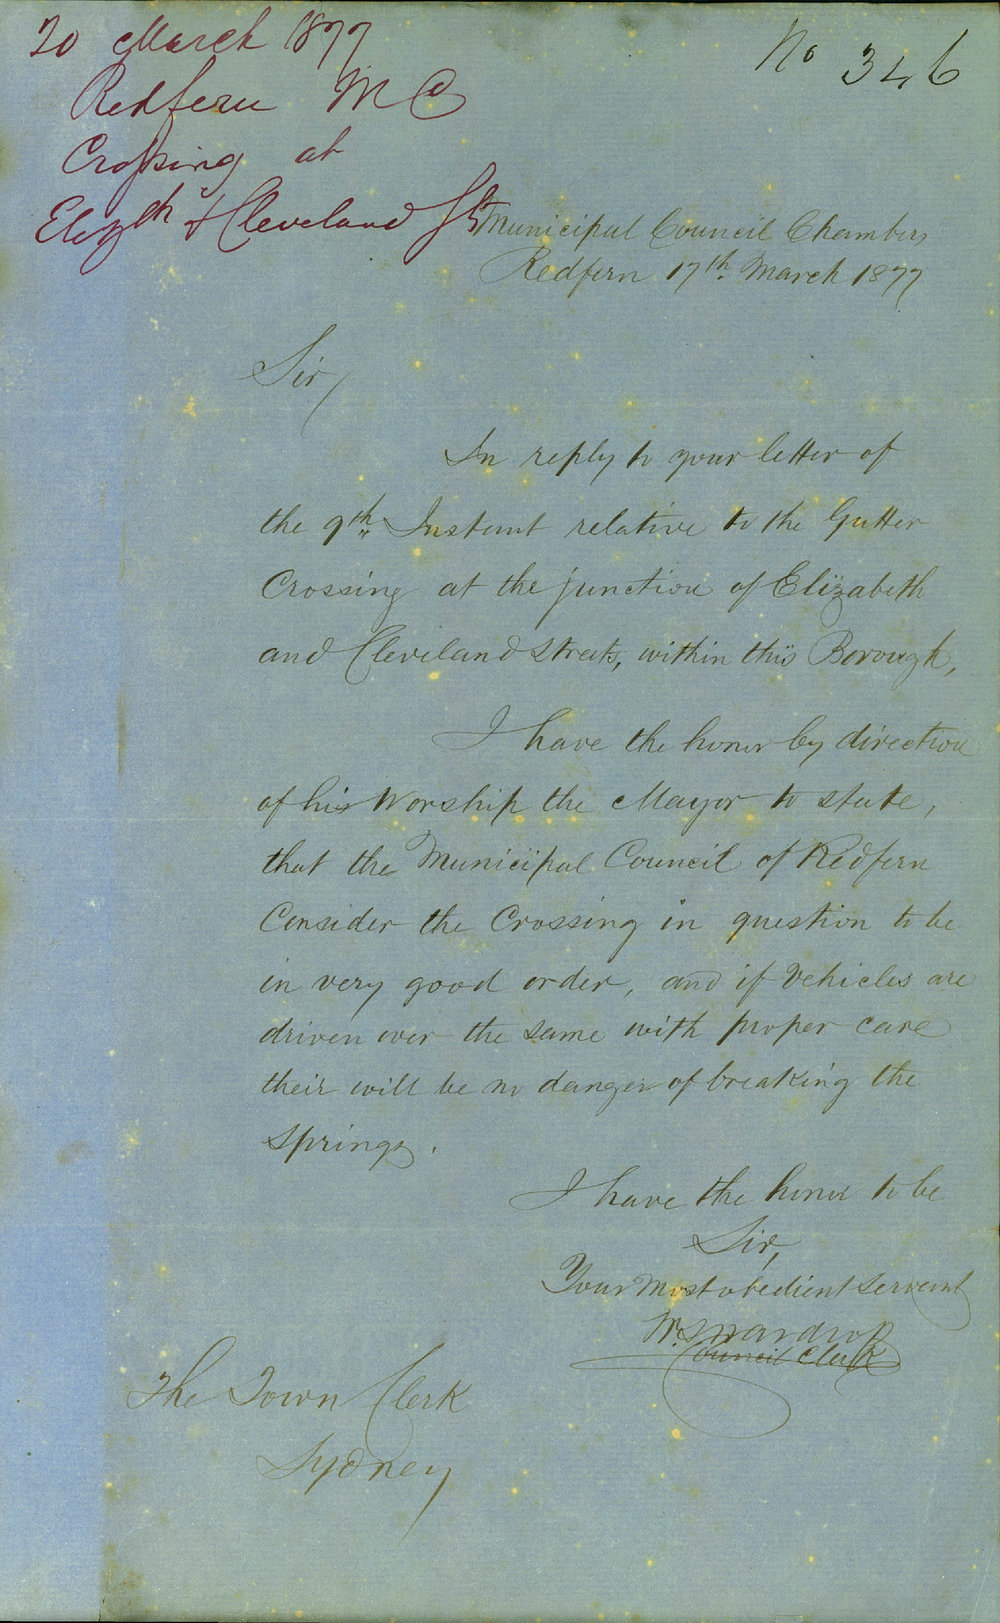 20 March 1877
Redfern M C
Crossing at
Elizth & Cleveland Sts
No 346
Municipal Council Chambers
Redfern 17th March 1877
Sir,
In reply to your letter of
the 9th Instant relative to the Gutter
Crossing at the junction of Elizabeth
and Cleveland Streets, within this Borough,
I have the honor by direction
of his Worship the Mayor to state,
that the Municipal Council of Redfern
Consider the Crossing in question to be
in very good order, and if Vehicles are
driven over the same with proper care
their will be no danger of breaking the
Springs.
I have the honor to be
Sir,
Your most obedient servant
Wardrop
Council Clerk
The Town Clerk
Sydney